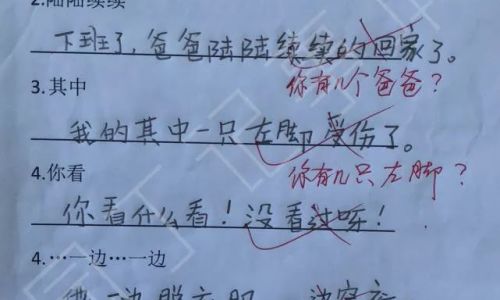 2.陆陆续续
下班了,爸爸陆陆续续的回家了。
你有几个爸爸?
3.其中
我的其中一只左脚受伤了。
你有几只左脚?
4.你看
你看什么看!没看过呀!
4.…一边…一边